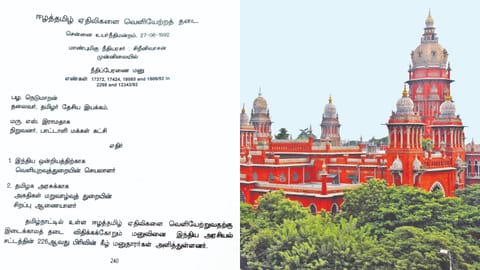 ஈழத்தமிழ் ஏதிலிகளை வெளியேற்றத் தடை
சென்னை உயர்நீதிமன்றம், 27-08-1992
மாண்புமிகு நீதியரசர் : சிறீனிவாசன்
முன்னிலையில்
நீதிப்பேரணை மனு
எண்கள் 17372, 17424, 18083 and 1809/92 in
2298 and 12343/92
பழ. நெடுமாறன்
தலைவர், தமிழர் தேசிய இயக்கம்.
மரு. எஸ். இராமதாசு
நிறுவனர், பாட்டாளி மக்கள் கட்சி
எதிர்
1. இந்திய ஒன்றியத்திற்காக
வெளியுறவுத்துறையின் செயலாளர்
2. தமிழக அரசுக்காக
அகதிகள் மறுவாழ்வுத் துறையின்
சிறப்பு ஆணையாளர்
தமிழ்நாட்டில் உள்ள ஈழத்தமிழ் ஏதிலிகளை வெளியேற்றுவதற்கு
இடைக்காலத் தடை விதிக்கக்கோரும் மனுவினை இந்திய அரசியல்
சட்டத்தின் 226ஆவது பிரிவின் கீழ் மனுதாரர்கள் அளித்துள்ளனர்.
240